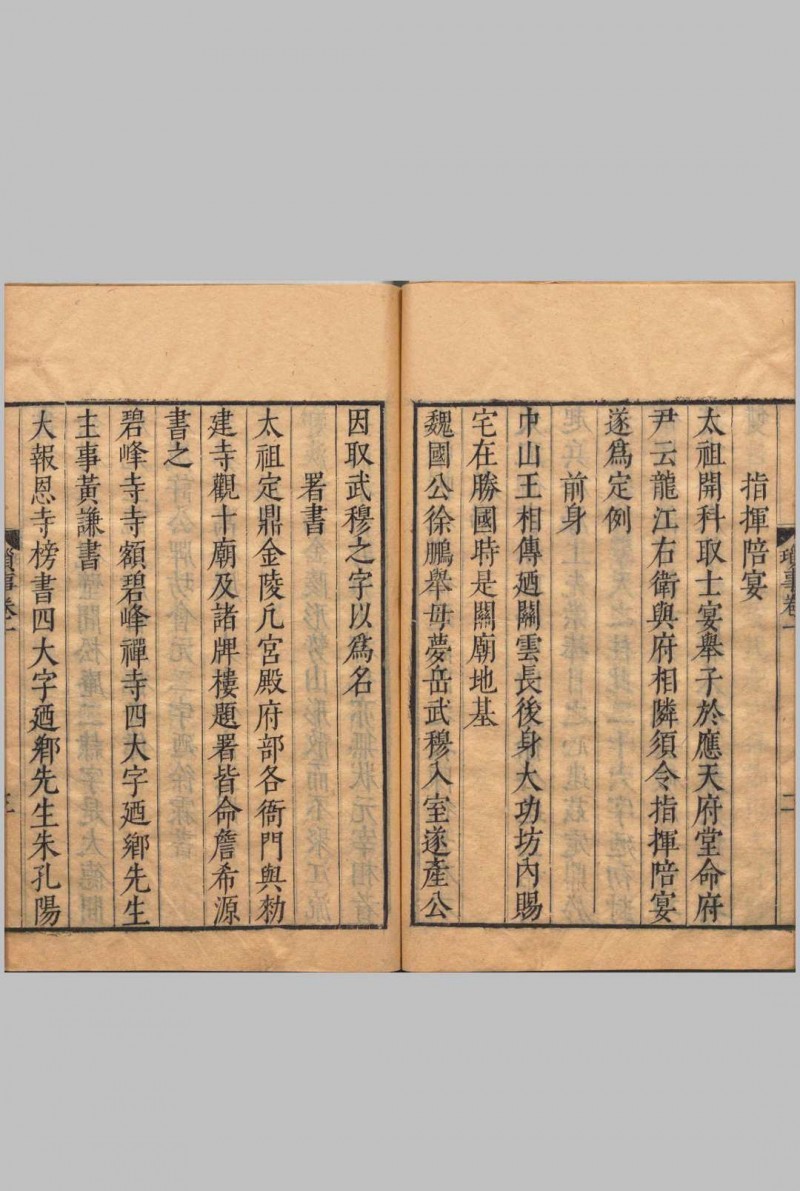 指揮陪宴
太祖開科取士宴舉子於應天府堂命府
尹云龍江右衛與府相隣須令指揮陪宴
遂爲定例
前身
中山王相傳廼關雲長後身大功坊內賜
宅在勝國時是關廟地基
魏國公徐鵬舉母夢岳武穆入室遂產公
因取武穆之字以爲名
署書
太祖定鼎金陵凡宮殿府部各衙門與勑
建寺觀十廟及諸牌樓題署皆命詹希源
書之
碧峰寺寺額碧峰禪寺四大字廼鄉先生
主事黃謙書
大報恩寺榜書四大字廼鄉先生朱孔陽
瑣事卷一
二
瑣事卷一
三